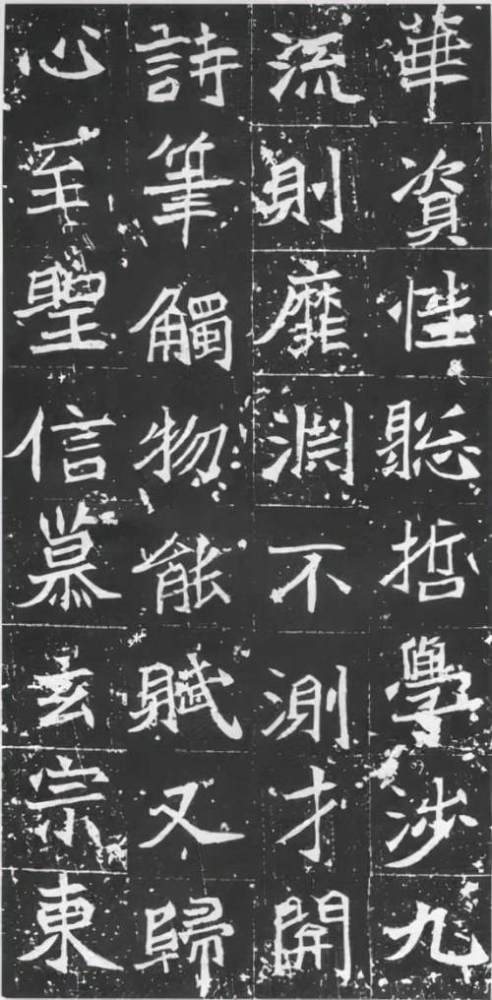 華資性聡哲學涉九
流則靡渊不測才開
詩筆觸物能賦又歸
心至聖信慕玄宗東